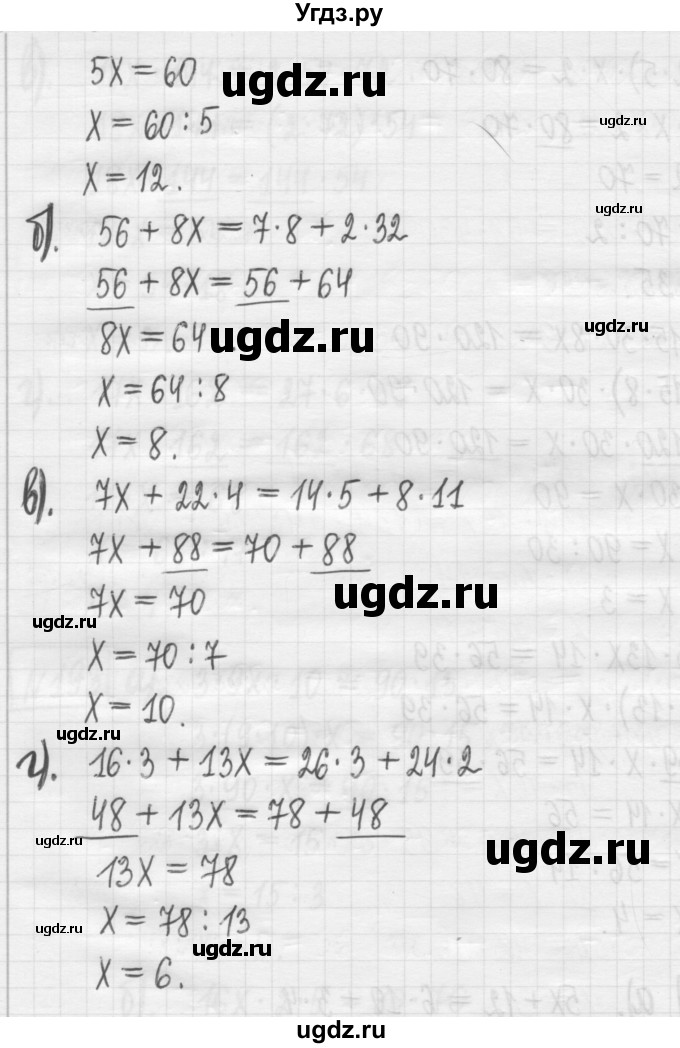 Угдз.ру
5x = 60
ugdz.ru
x = 60 : 5
ugdz.ru
x = 12.
ugdz.ru
б). 56 + 8x = 7·8 + 2·32
56 + 8x = 56 + 64
8x = 64
ugdz.ru
ugdz.ru
x = 64 : 8
x = 8.
в). 7x + 22·4 = 14·5 + 8·11
7x + 88 = 70 + 88
7x = 70
ugdz.ru
ugdz.ru
x = 70 : 7
x = 10.
ugdz.ru
г). 16·3 + 13x = 26·3 + 24·2
48 + 13x = 78 + 48
ugdz.ru
ugdz.ru
13x = 78
x = 78 : 13
ugdz.ru
ugdz.ru
x = 6.
ugdz.ru